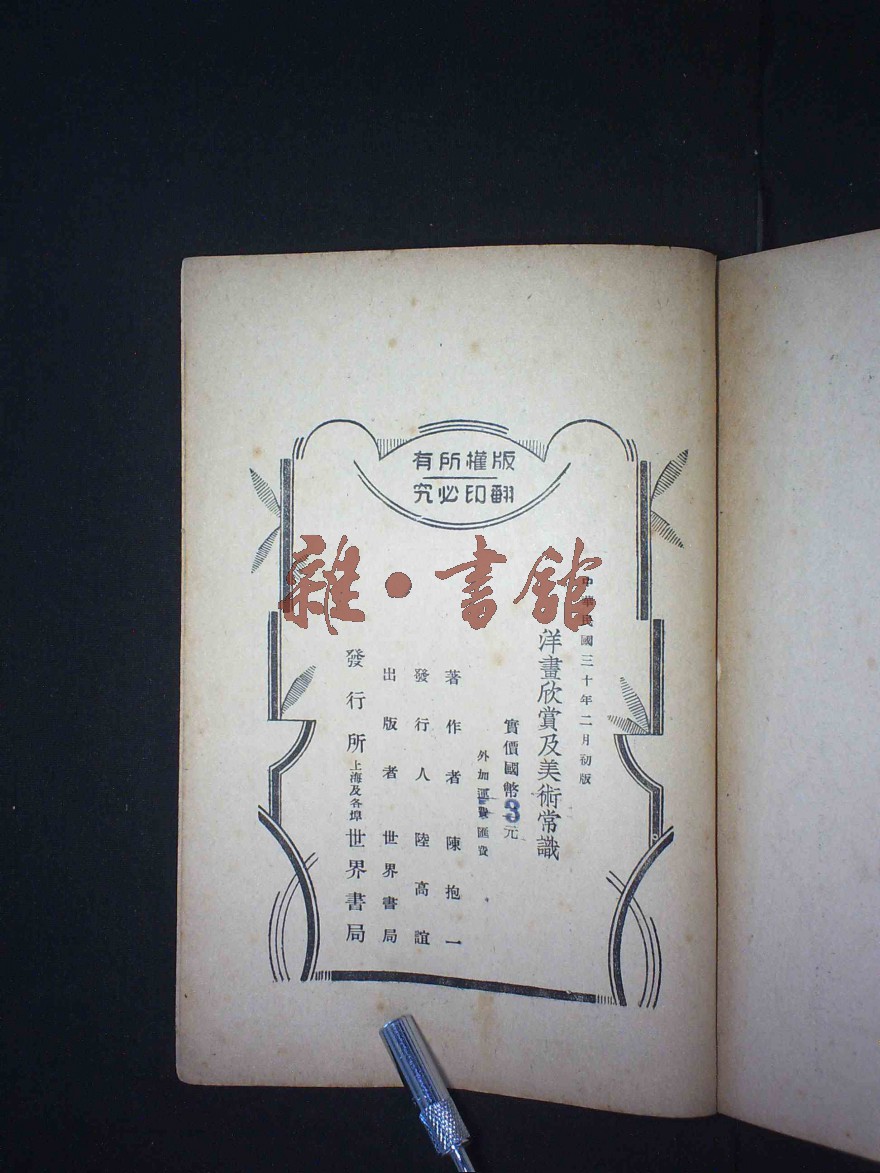 版權所有
翻印必究
雜·書館
中華民國三十年二月初版
洋畫欣賞及美術常識
實價國幣3元
外加運費匯費
著作者 陳抱一
發行人 陸高誼
出版者 世界書局
發行所 上海及各埠 世界書局